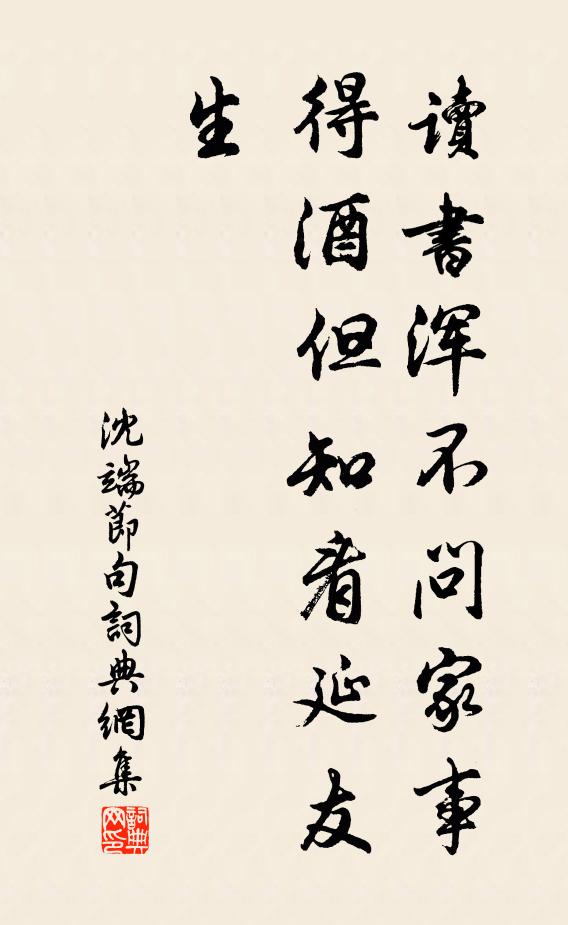 讀書渾不問家事
得酒但知肴延友
生
沈端節句詞典網集
詞典网印